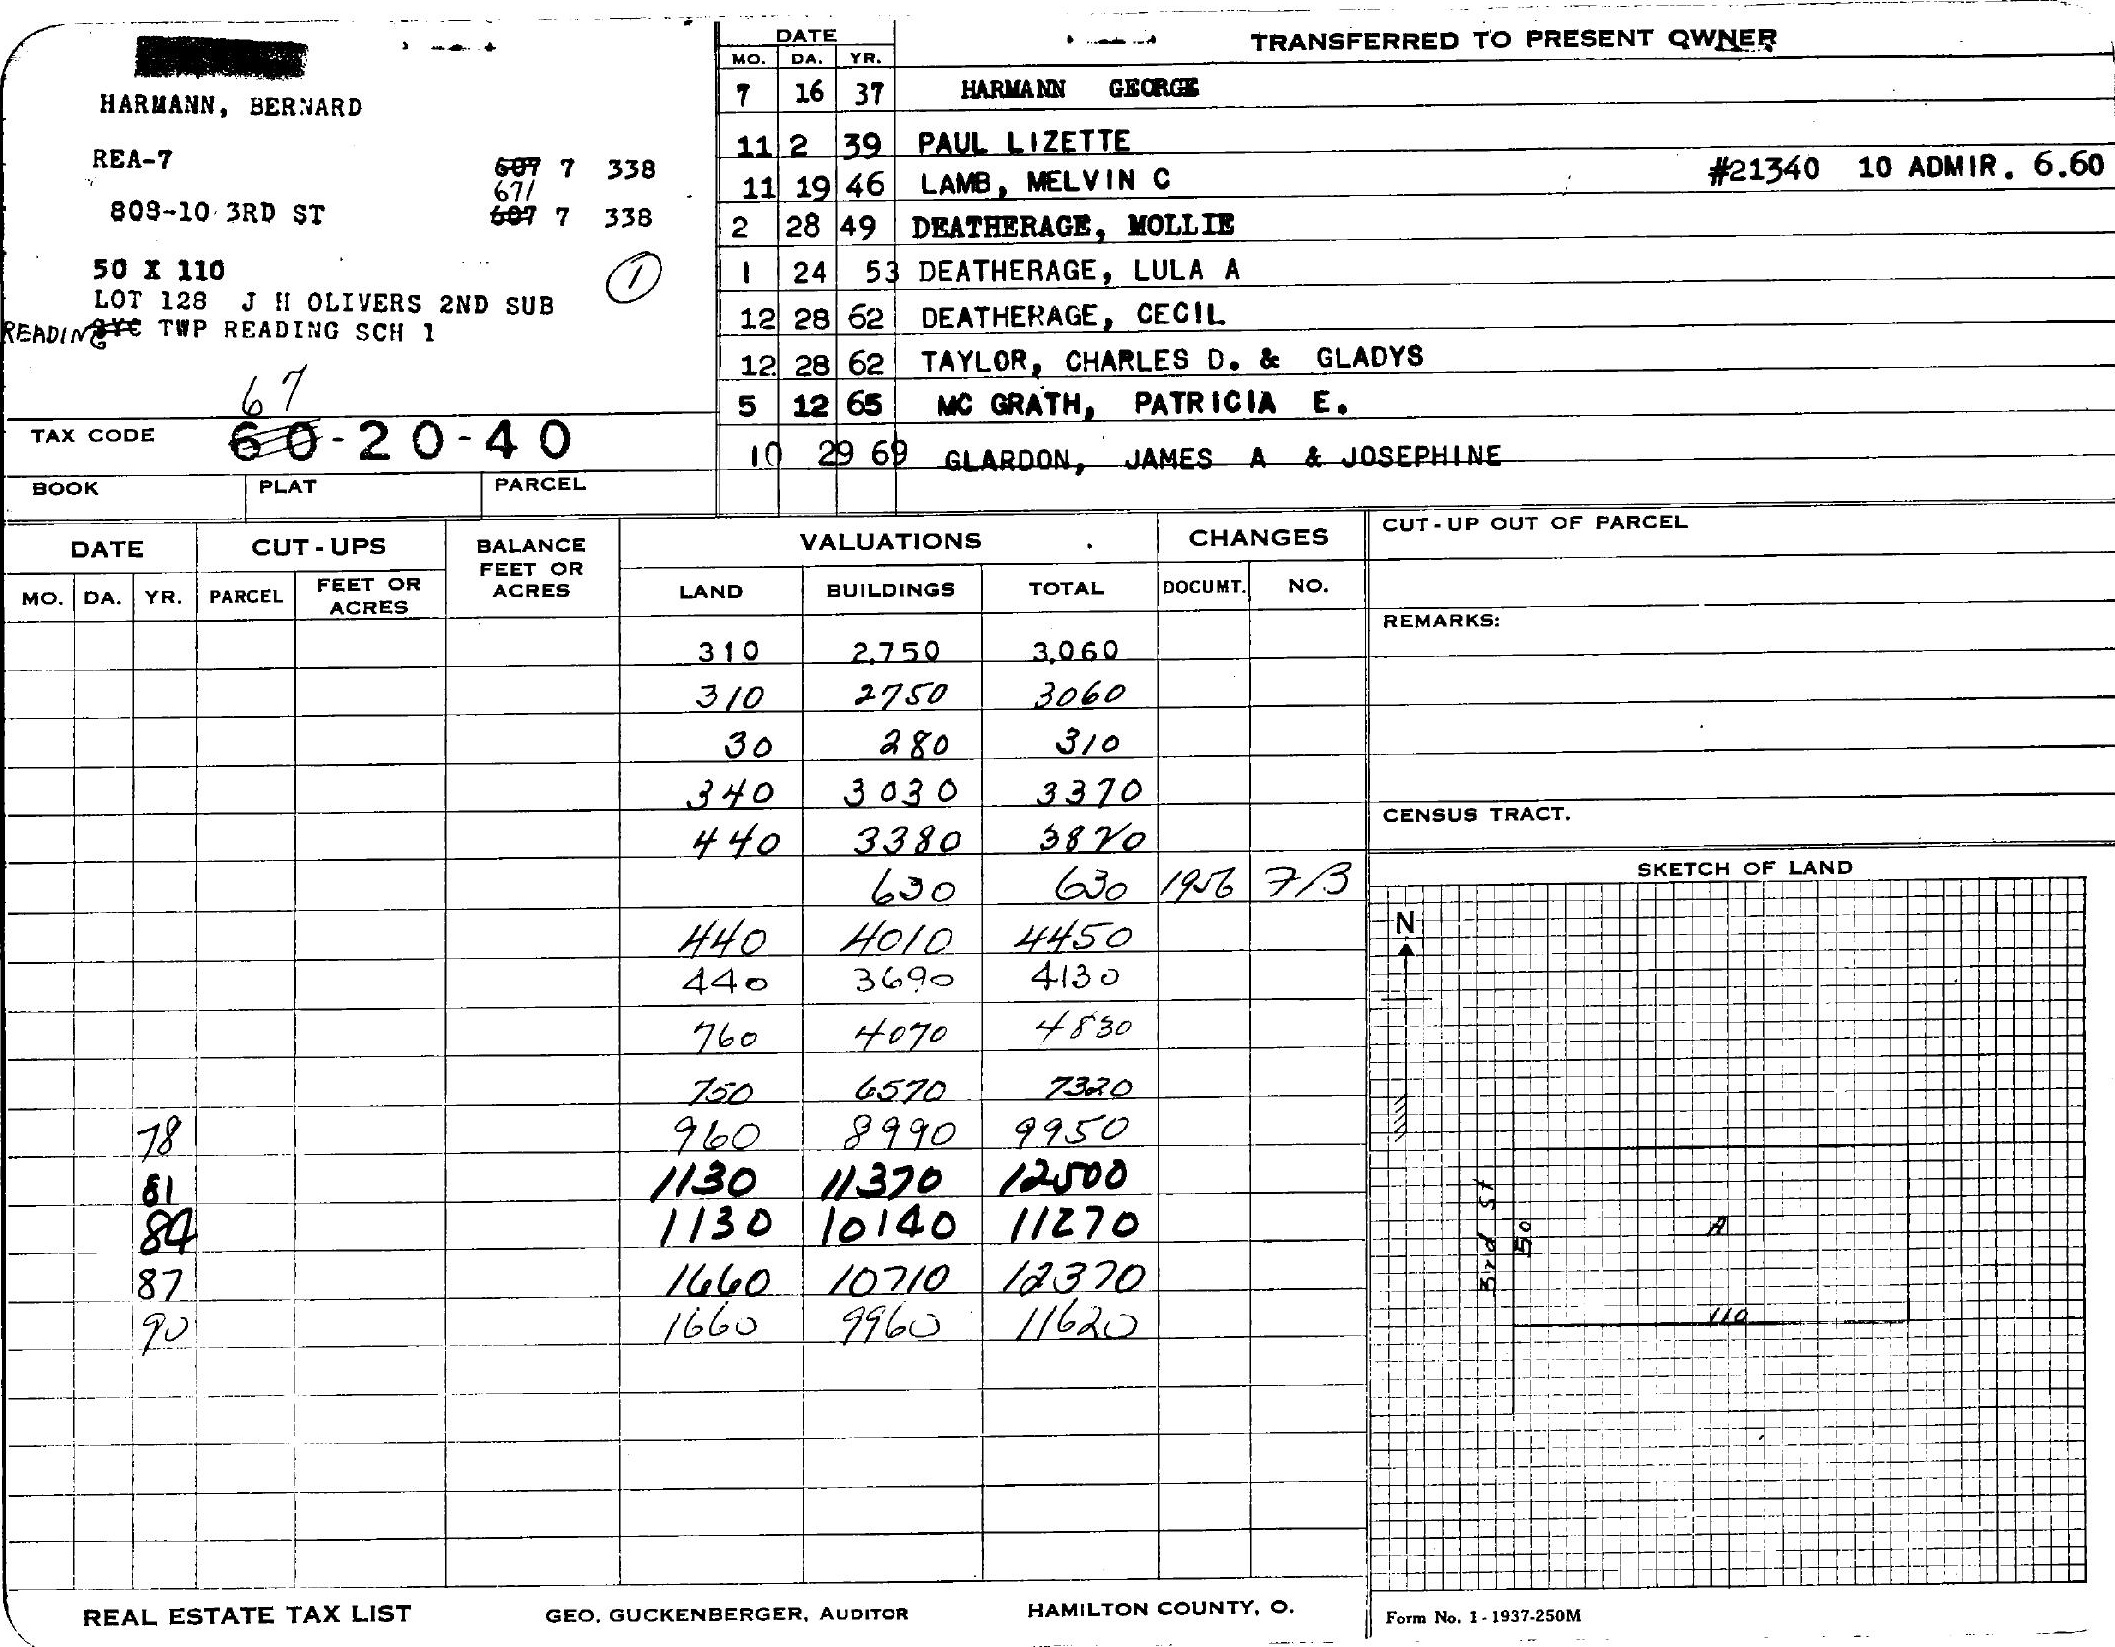 HARMANN, BERNARD
REA-7 607 7 338
671
808-10 3RD ST 607 7 338
50 X 110 1
LOT 128 J H OLIVERS 2ND SUB
READING SYC TWP READING SCH 1
67
TAX CODE 60-20-40
BOOK PLAT PARCEL
DATE TRANSFERRED TO PRESENT OWNER
MO. DA. YR.
7 16 37 HARMANN GEORGE
11 2 39 PAUL LIZETTE
11 19 46 LAMB, MELVIN C #21340 10 ADMIR. 6.60
2 28 49 DEATHERAGE, MOLLIE
1 24 53 DEATHERAGE, LULA A
12 28 62 DEATHERAGE, CECIL
12 28 62 TAYLOR, CHARLES D. & GLADYS
5 12 65 MC GRATH, PATRICIA E.
10 29 69 GLARDON, JAMES A & JOSEPHINE
DATE CUT-UPS BALANCE FEET OR ACRES VALUATIONS CHANGES
MO. DA. YR. PARCEL FEET OR ACRES LAND BUILDINGS TOTAL DOCUMT. NO.
310 2,750 3,060
310 2750 3060
30 280 310
340 3030 3370
440 3380 3820
630 630 1956 713
440 4010 4450
440 3690 4130
760 4070 4830
750 6570 7320
78 960 8990 9950
81 1130 11370 12500
84 1130 10140 11270
87 1660 10710 12370
90 1660 9960 11620
CUT-UP OUT OF PARCEL
REMARKS:
CENSUS TRACT.
SKETCH OF LAND
N
3rd St
50
A
110
REAL ESTATE TAX LIST GEO. GUCKENBERGER, AUDITOR HAMILTON COUNTY, O. Form No. 1-1937-250M